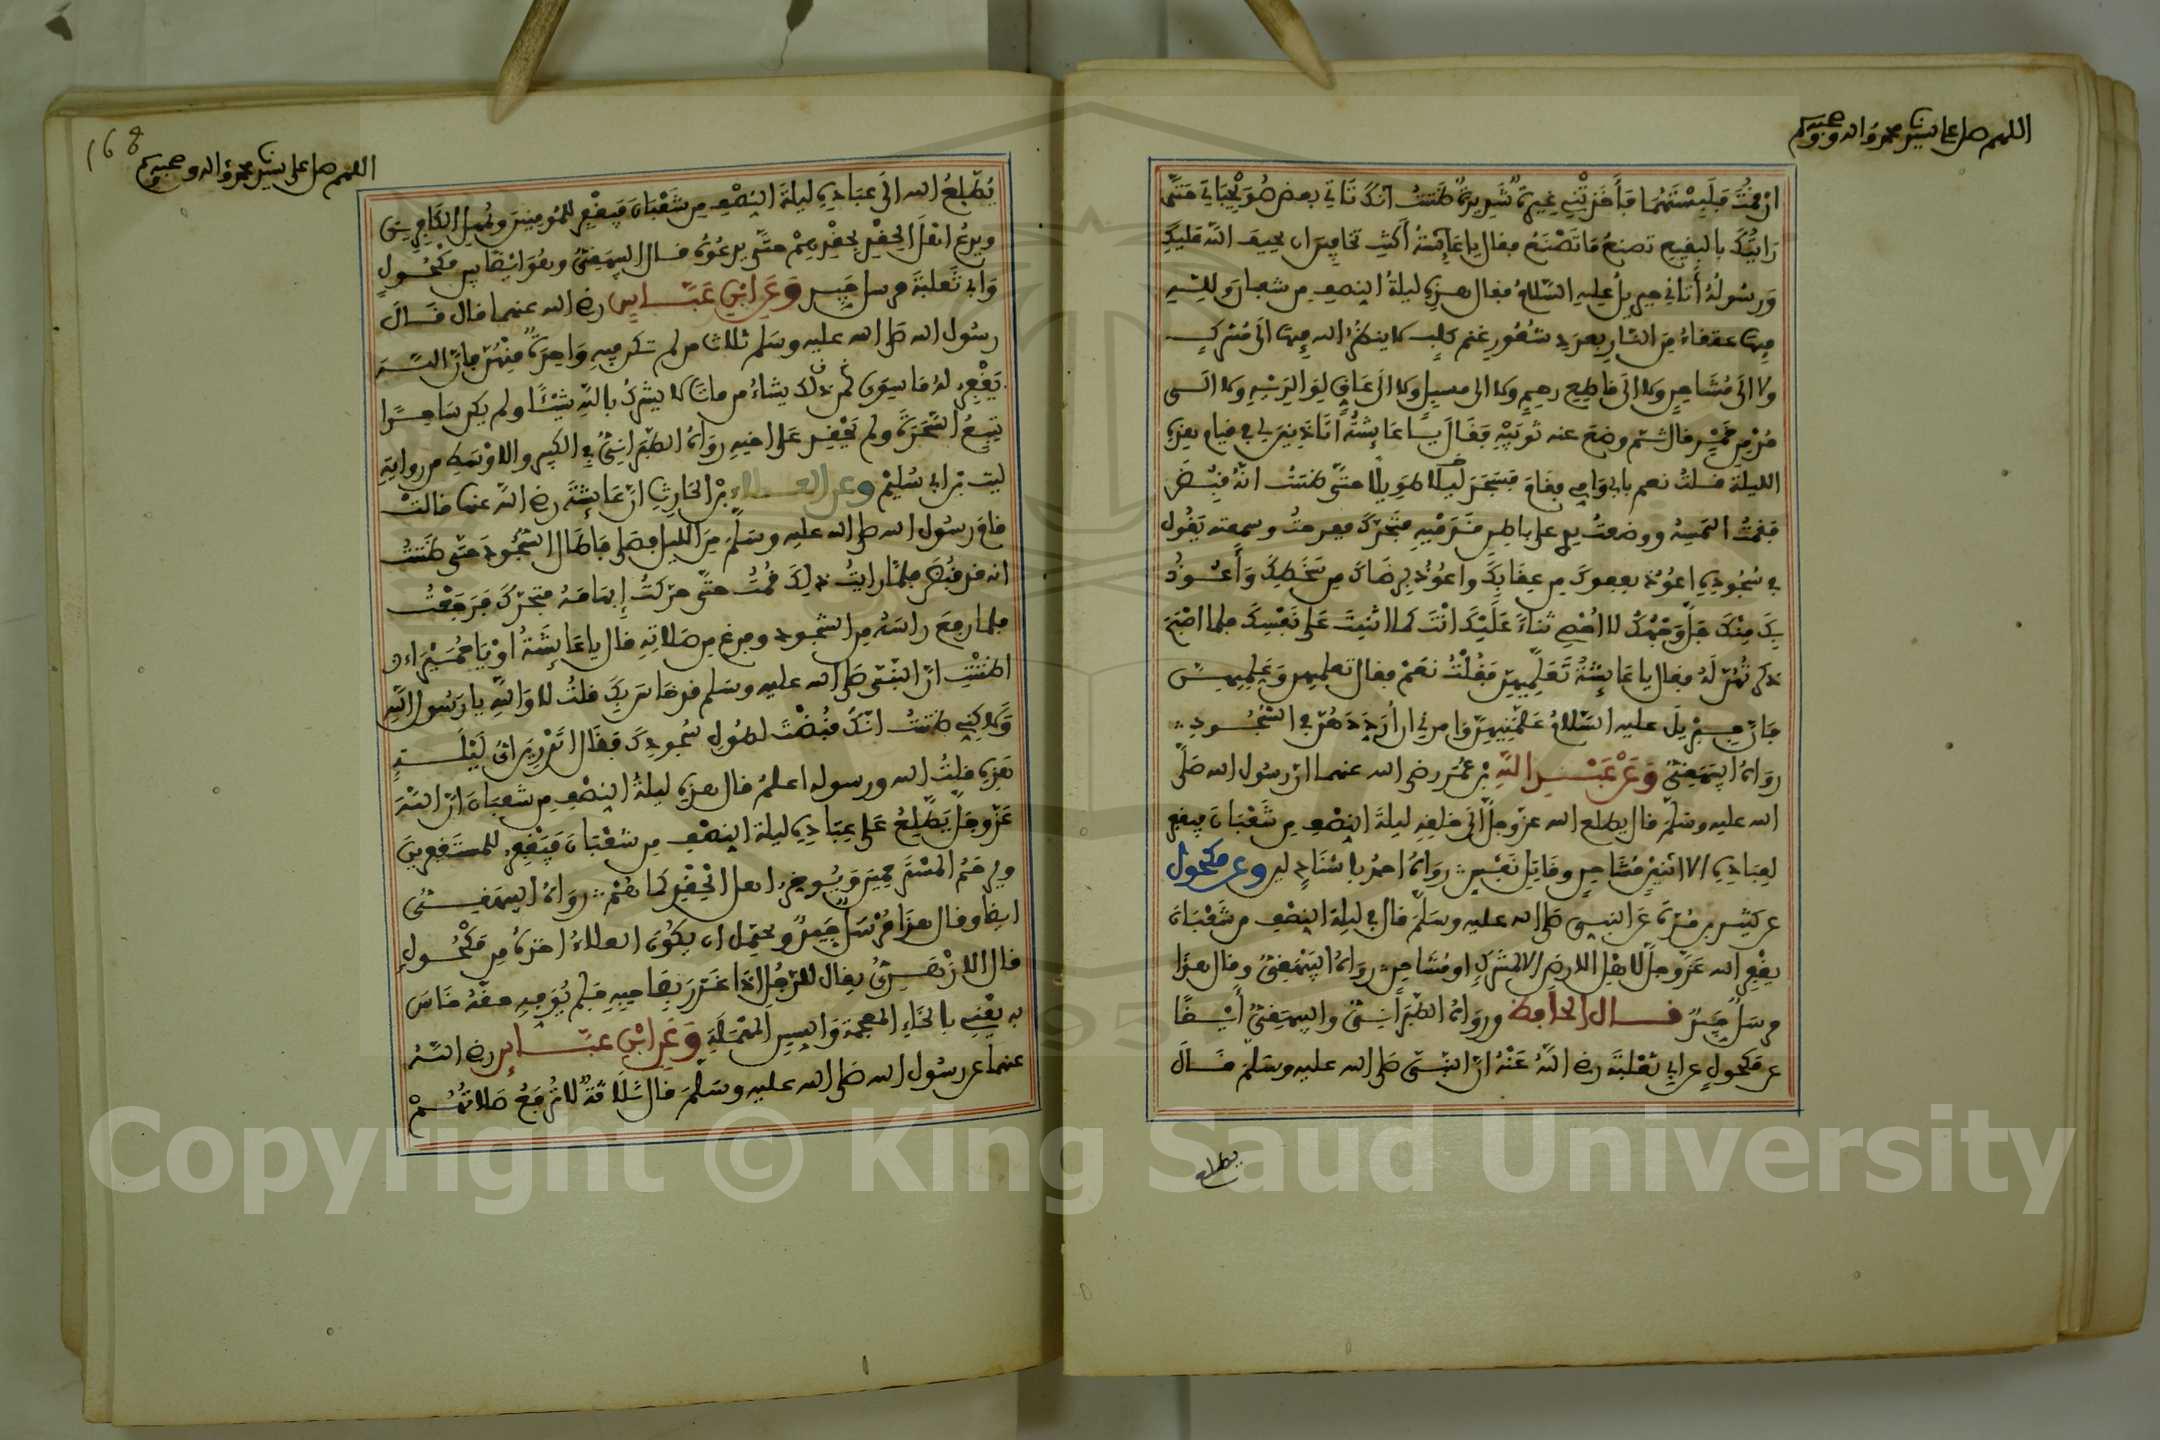 اللهم صل على سيدنا محمد وآله وصحبه وسلم
ان قمت فلبستهما فأخذتني غيرة شديدة ظننت انك تاتي بعض صويحباتي حتى
رايتك بالبقيع تصنع ما تصنع فقال يا عائشة أكنت تخافين ان يحيف الله عليك
ورسوله أتاني جبريل عليه السلام فقال هذه ليلة النصف من شعبان ولله
فيها عتقاء من النار بعدد شعور غنم كلب لا ينظر الله فيها الى مشرك
ولا الى مشاحن ولا الى قاطع رحم ولا الى مسبل ولا الى عاق لوالديه ولا الى
مدمن خمر قال ثم وضع عنه ثوبيه فقال يا عائشة أتاذنين لي في قيام هذه
الليلة فقلت نعم بابي وامي فقام فسجد ليلا طويلا حتى ظننت انه قبض
فقمت التمسه ووضعت يدي على باطن قدميه فتحرك ففرحت وسمعته يقول
في سجوده اعوذ بعفوك من عقابك واعوذ برضاك من سخطك وأعوذ
بك منك جل وجهك لا احصي ثناء عليك انت كما اثنيت على نفسك فلما اصبح
ذكرتهن له فقال يا عائشة تعلمتهن فقلت نعم فقال تعلميهن وعلميهن
فان جبريل عليه السلام علمنيهن وامرني ان أرددهن في السجود
رواه البيهقي وعن عبد الله بن عمر رضي الله عنهما ان رسول الله صلى
الله عليه وسلم قال يطلع الله عز وجل الى خلقه ليلة النصف من شعبان فيغفر
لعباده الا اثنين مشاحن وقاتل نفس رواه احمد باسناد لين وعن مكحول
عن كثير بن مرة عن النبي صلى الله عليه وسلم قال في ليلة النصف من شعبان
يغفر الله عز وجل لاهل الارض الا المشرك او مشاحن رواه البيهقي وقال هذا
مرسل جيد قال الحافظ ورواه الطبراني والبيهقي أيضا
عن مكحول عن ابي ثعلبة رضي الله عنه ان النبي صلى الله عليه وسلم قال
يطلع
168
اللهم صل على سيدنا محمد وآله وصحبه وسلم
يطلع الله الى عباده ليلة النصف من شعبان فيغفر للمؤمنين ويمهل الكافرين
ويدع اهل الحقد بحقدهم حتى يدعوه قال البيهقي وهو ايضا بين مكحول
وابي ثعلبة مرسل جيد وعن ابن عباس رضي الله عنهما قال قال
رسول الله صلى الله عليه وسلم ثلاث من لم تكن فيه واحدة منهن فان الله
يغفر له ما سوى ذلك لمن يشاء من مات لا يشرك بالله شيئا ولم يكن ساحرا
يتبع السحرة ولم يحقد على اخيه رواه الطبراني في الكبير والاوسط من رواية
ليث بن ابي سليم وعن العلاء بن الحارث ان عائشة رضي الله عنها قالت
قام رسول الله صلى الله عليه وسلم من الليل فصلى فاطال السجود حتى ظننت
انه قد قبض فلما رايت ذلك قمت حتى حركت إبهامه فتحرك فرجعت
فلما رفع راسه من السجود وفرغ من صلاته قال يا عائشة او يا حميراء
اظننت ان النبي صلى الله عليه وسلم قد خاس بك قلت لا والله يا رسول الله
ولكني ظننت انك قبضت لطول سجودك فقال اتدرين اي ليلة
هذه قلت الله ورسوله اعلم قال هذه ليلة النصف من شعبان ان الله
عز وجل يطلع على عباده ليلة النصف من شعبان فيغفر للمستغفرين
ويرحم المسترحمين ويؤخر اهل الحقد كما هم رواه البيهقي
ايضا وقال هذا مرسل جيد ويحتمل ان يكون العلاء اخذه من مكحول
قال الازهري يقال للرجل اذا غدر بصاحبه فلم يؤته حقه خاس
به يعني بالخاء المعجمة والسين المهملة وعن ابن عباس رضي الله
عنهما عن رسول الله صلى الله عليه وسلم قال ثلاثة لا ترفع صلاتهم
Copyright © King Saud University